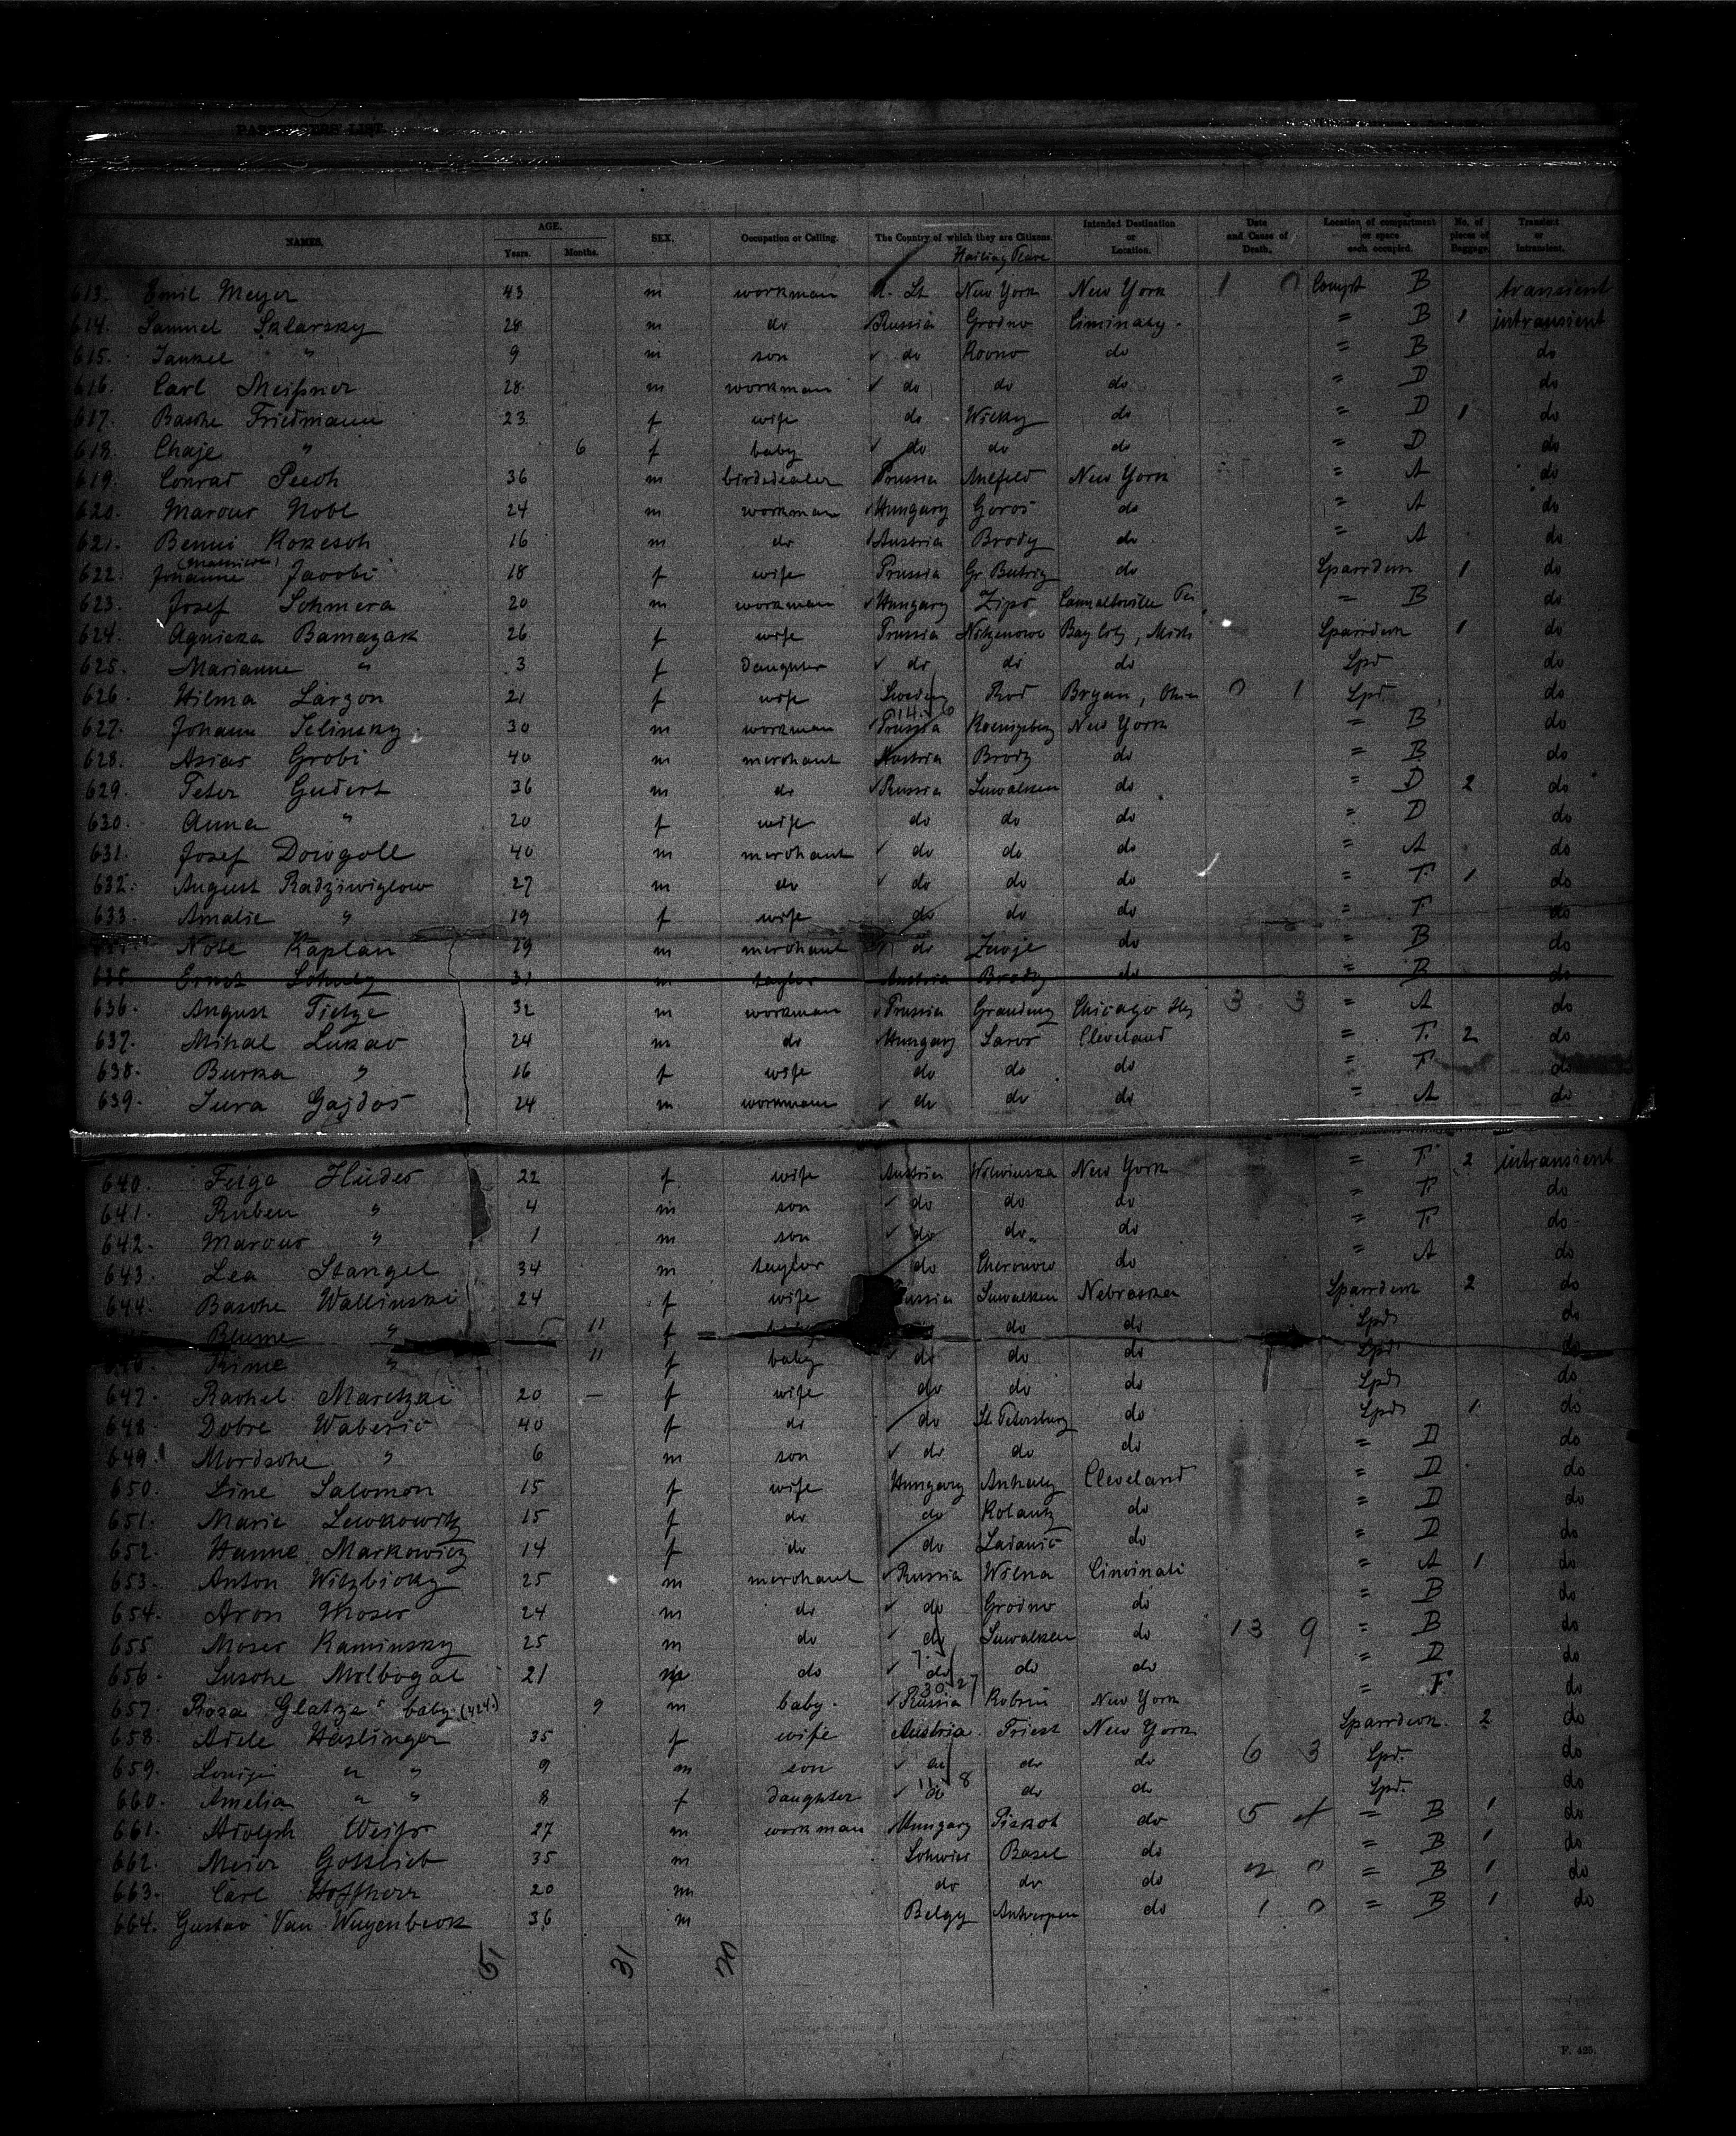 PASSENGERS' LIST.
NAMES. AGE. Years. Months. SEX. Occupation or Calling. The Country of which they are Citizens. Hailing Place Intended Destination or Location. Date and Cause of Death. Location of compartment or space each occupied. No. of pieces of Baggage. Transient or Intransient.
613. Emil Meyer 43 m workman U. St New York New York 1 0 Compt B transient
614. Samuel Sklarsky 28 m do Russia Grodno = B 1 intransient
615. Jankel " 9 m son do Rovno do = B do
616. Carl Meißner 28 m workman do do do = D do
617. Basche Friedmann 23 f wife do Wilky do = D 1 do
618. Chaje " 6 f baby do do do = D do
619. Conrad Peech 36 m birddealer Prussia Anlfeld New York = A do
620. Marcus Nobl 24 m workman Hungary Goros do = A do
621. Benni Kokesch 16 m do Austria Brody do = A do
622. Johanne Jacobi 18 f wife Prussia do Sparrdeck 1 do
623. Josef Schmera 20 m workman Hungary Zips = B do
624. Agnieza Bamazak 26 f wife Prussia Bay City, Mich Sparrdeck 1 do
625. Marianne " 3 f Daughter do do do Spd do
626. Hilma Larzon 21 f wife Sweden Rod Bryan, Ohio 0 1 Spd do
627. Johann Selinsky 30 m workman Prussia Koenigsberg New York = B do
628. Asias Grobi 40 m merchant Austria Brody do = B do
629. Peter Gudert 36 m do Russia Suwalken do = D 2 do
630. Anna " 20 f wife do do do = D do
631. Josef Dowgoll 40 m merchant do do do = A do
632. August Radziwiglow 27 m do do do do = F 1 do
633. Amalie " 19 f wife do do do = F do
Note Kaplan 29 m merchant do Zwoje do = B do
635. Ernst Schulz 31 m taylor Austria Brody do = B do
636. August Tietze 32 m workman Prussia Graudenz Chicago Ills 3 3 = A do
637. Mihal Lukac 24 m do Hungary Saros Cleveland = F. 2 do
638. Burka " 16 f wife do do do = F do
639. Jura Gajdos 24 m workman do do do = A do
640. Feige Hudes 22 f wife Austria New York = F 2 intransient
641. Ruben " 4 m son do do do = F do
642. Marcus " 1 m son do do do = F do
643. Lea Stangel 34 m taylor do do = A do
644. Basche Wallinski 24 f wife Russia Suwalken Nebraska Sparrdeck 2 do
Blume " 11 f do do Spd do
Rime " 11 f baby do do do Spd do
647. Rachel Maretzki 20 — f wife do do do Spd do
648. Dobre Waberic 40 f do do St. Petersburg do Spd 1 do
649. Mordsche " 6 m son do do do = D do
650. Line Salomon 15 f wife Hungary Cleveland = D do
651. Marie Lewkowitz 15 f do do Kolautz do = D do
652. Hanne Markowicz 14 f do do Ladanic do = D do
653. Anton Witzbicky 25 m merchant Russia Wilna Cincinati = A 1 do
654. Aron Moser 24 m do do Grodno do = B do
655. Moser Kaminsky 25 m do do Suwalken do 13 9 = B do
656. Susche Molbogat 21 m do do do do = D do
657. Rosa Glatze's baby (424.) 9 m baby. Russia Kobrin New York = F do
658. Adele Haslinger 35 f wife Austria Triest New York Sparrdeck 2 do
659. Louise " " 9 m son do do do 6 3 Spd. do
660. Amelia " " 8 f daughter do do do Spd. do
661. Adolph Weiss 27 m workman Hungary Piskot do 5 = B 1 do
662. Meier Gottlieb 35 m Schweiz Basel do = B 1 do
663. Carl Hoffherr 20 m do do do 0 = B 1 do
664. Gustav Van Wuyenbeck 36 m Belgy Antwerpen do 1 0 = B 1 do
51 31 20
F. 425.